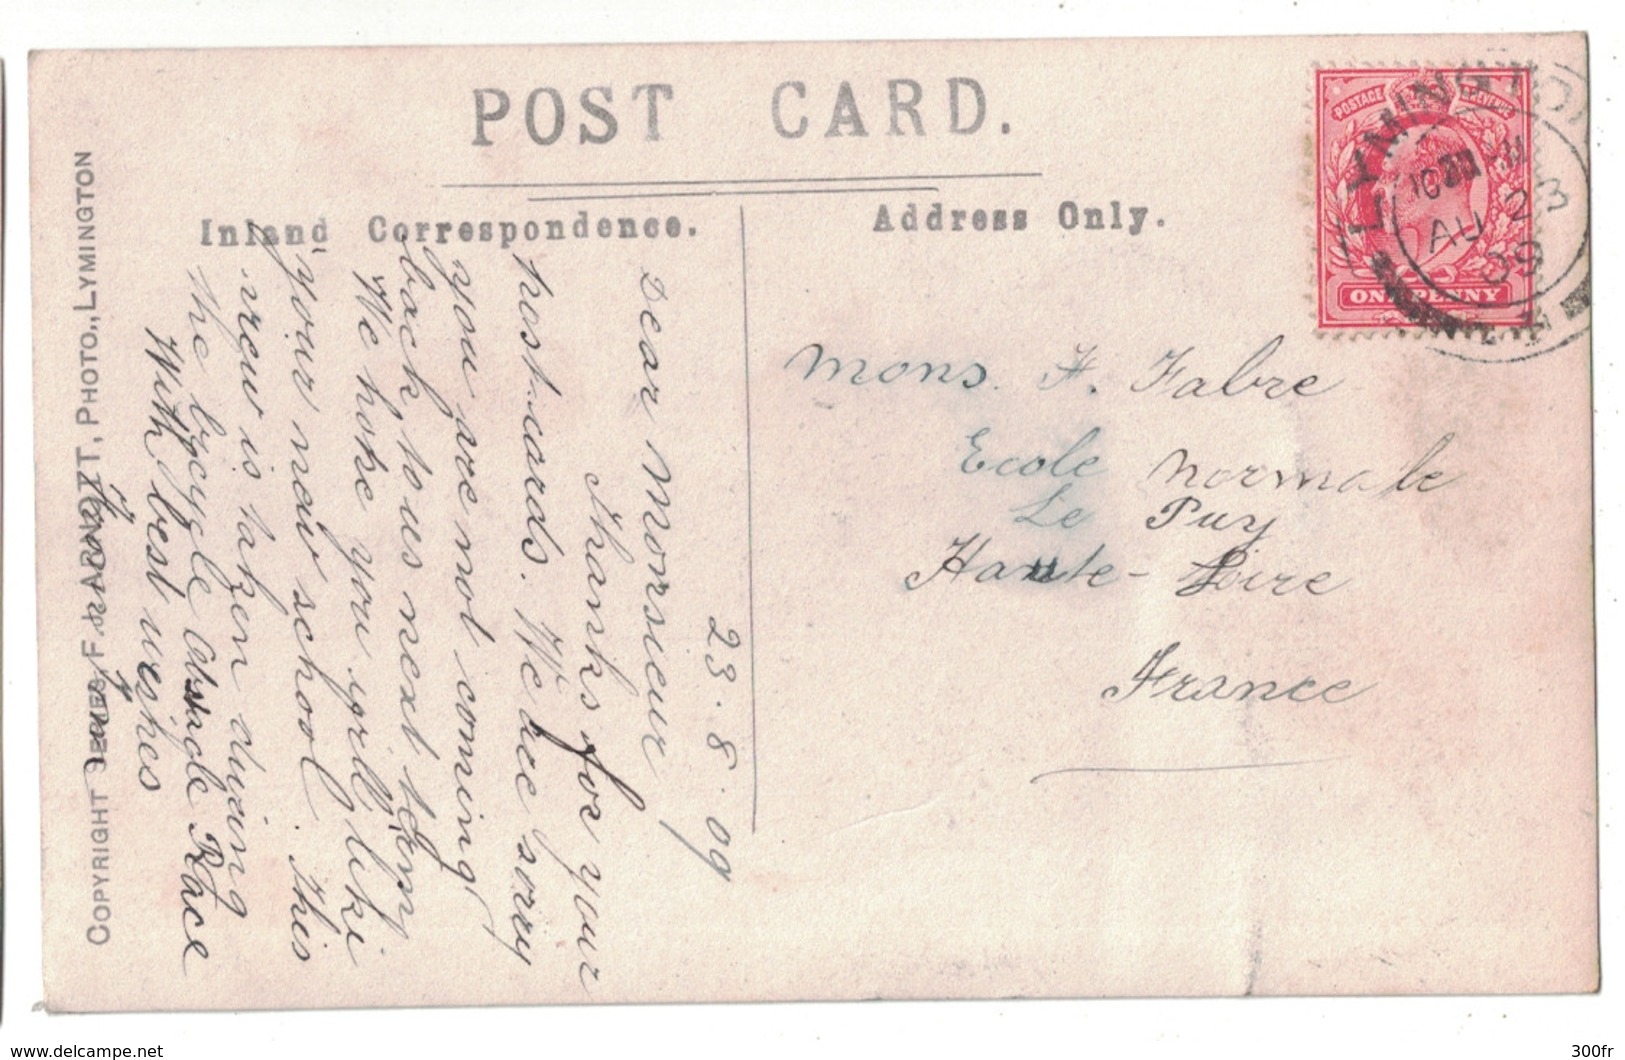 POST CARD.
Inland Correspondence.
Address Only.
POSTAGE
REVENUE
ONE PENNY
LYMINGTON
AU 23
09
Mons. F. Fabre
Ecole Normale
Le Puy
Haute-Loire
France
23.8.09
Dear Monsieur
Thanks for your
post-cards. We are sorry
you are not coming
back to us next term,
We hope you will like
your new school. This
view is taken during
the bycycle Obstacle Race
With best wishes
COPYRIGHT SERIES, F & ARNOTT, PHOTO., LYMINGTON
www.delcampe.net
300fr